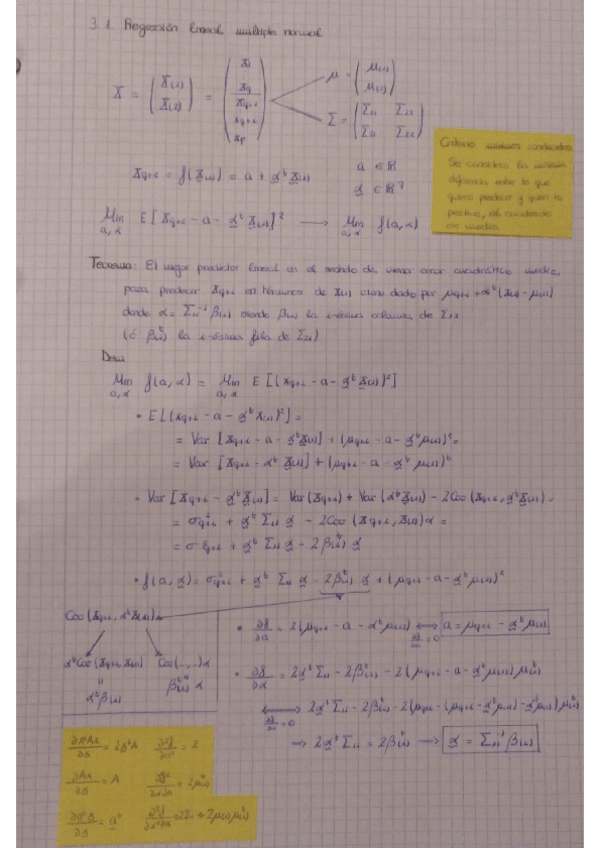 3.1. Regresión lineal múltiple normal
X = (X(1) X(2)) = (X1 Xq Xq+1 Xq+i Xp)
μ = (μ(1) μ(2))
Σ = (Σ11 Σ12 Σ21 Σ22)
Criterio mínimos cuadrados
Se considera la mínima
diferencia entre lo que
quiero predecir y quien lo
predice, al cuadrado
en media.
Xq+i = f(X(1)) = a + α^t X(1)
a ∈ ℝ
α ∈ ℝ^q
Min a,α E[Xq+i - a - α^t X(1)]² → Min a,α f(a,α)
Teorema: El mejor predictor lineal en el sentido de menor error cuadrático medio,
para predecir Xq+i en términos de X(1) viene dado por μq+i + α^t(X(1) - μ(1))
donde α = Σ11^-1 β(i) siendo β(i) la i-ésima columna de Σ12
(ó β(i)^t la i-ésima fila de Σ21)
Dem
Min a,α f(a,α) = Min a,α E[(Xq+i - a - α^t X(1))²]
• E[(Xq+i - a - α^t X(1))²] =
= Var[Xq+i - a - α^t X(1)] + (μq+i - a - α^t μ(1))² =
= Var[Xq+i - α^t X(1)] + (μq+i - a - α^t μ(1))²
• Var[Xq+i - α^t X(1)] = Var(Xq+i) + Var(α^t X(1)) - 2Cov(Xq+i, α^t X(1)) =
= σ²q+i + α^t Σ11 α - 2Cov(Xq+i, X(1))α =
= σ²q+i + α^t Σ11 α - 2β(i)^t α
• f(a,α) = σ²q+i + α^t Σ11 α - 2β(i)^t α + (μq+i - a - α^t μ(1))²
Cov(Xq+i, α^t X(1))
α^t Cov(Xq+i, X(1))
=
α^t β(i)
Cov(...,...)α
β(i)^t α
• ∂f/∂a = 2(μq+i - a - α^t μ(1)) ⟺ ∂f/∂a = 0 a = μq+i - α^t μ(1)
• ∂f/∂α = 2α^t Σ11 - 2β(i)^t - 2(μq+i - a - α^t μ(1)) μ(1)^t
⟺ ∂f/∂α = 0 2α^t Σ11 - 2β(i)^t - 2(μq+i - (μq+i - α^t μ(1)) - α^t μ(1)) μ(1)^t
⇒ 2α^t Σ11 = 2β(i)^t → α = Σ11^-1 β(i)
= 2
= A